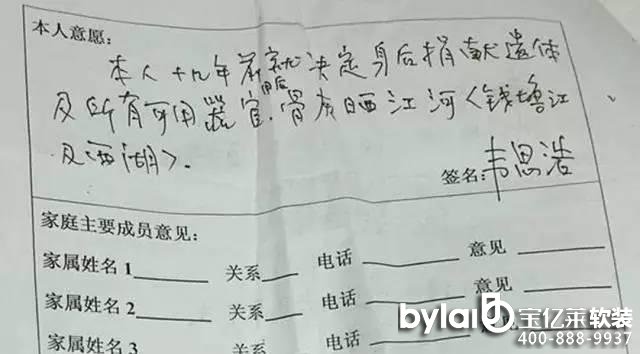 本人意愿：
本人十九年前就决定身后捐献遗体
及所有可用器官.用后骨灰晒江河<钱塘江
及西湖>.
签名：韦思浩
家庭主要成员意见：
家属姓名1 关系 电话 意见
家属姓名2 关系 电话 意见
家属姓名3 关系 电话
bylai 宝亿莱软装
400-888-9937